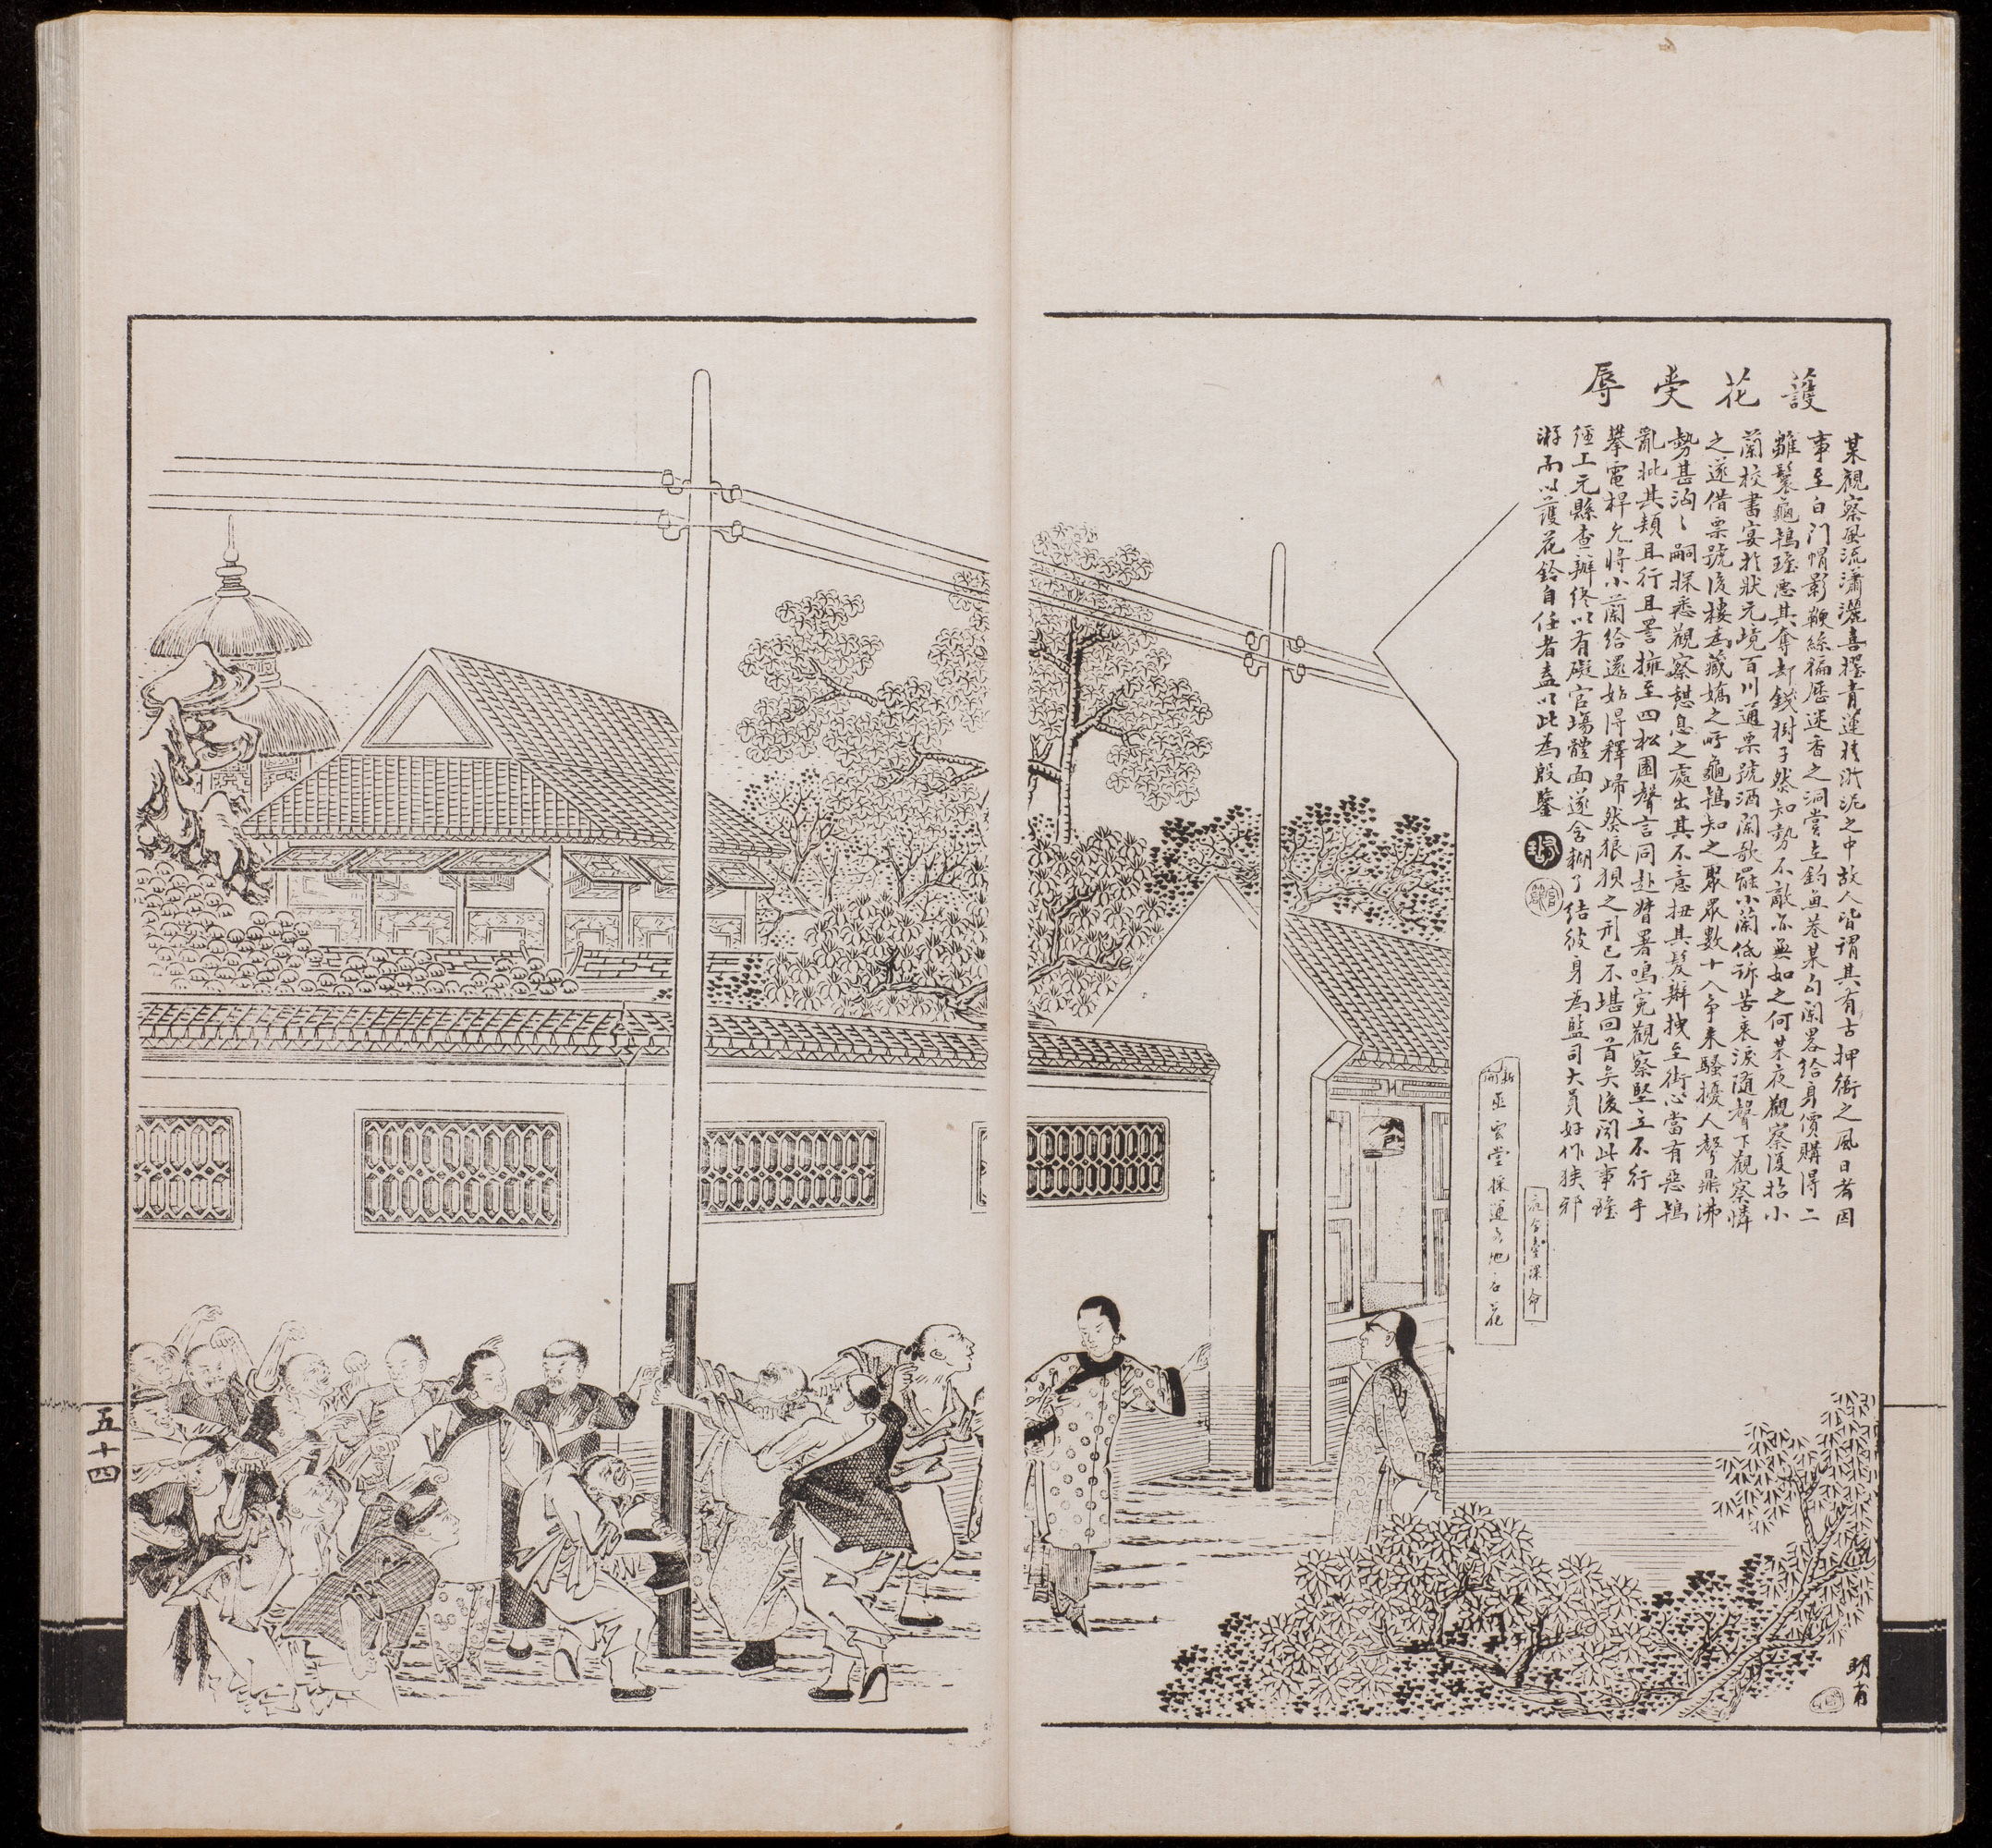 護花受辱
某觀察風流瀟灑喜擢青蓮於淤泥之中故人皆謂其有古押衙之風日者因
事至白門帽影鞭絲徧歷迷香之洞嘗至釣魚巷某勾闌畧給身價購得二
雛鬟龜鴇雖惡其奪却錢樹子然知勢不敵亦無如之何某夜觀察復招小
蘭校書宴於狀元境百川通票號酒闌歌罷小蘭低訴苦衷淚隨聲下觀察憐
之遂借票號後樓為藏嬌之所龜鴇知之聚眾數十人爭來騷擾人聲鼎沸
勢甚洶洶嗣探悉觀察憩息之處出其不意扭其髮辮拽至街心當有惡鴇
亂批其頰且行且詈擁至四松園聲言同赴督署鳴寃觀察堅立不行手
攀電桿允將小蘭給還始得釋歸然狼狽之形已不堪回首矣後聞此事雖
經上元縣查辦終以有礙官塲體面遂含糊了結彼身為監司大員好作狹邪
游而以護花鈴自任者盍以此為殷鑒
明甫
五十四